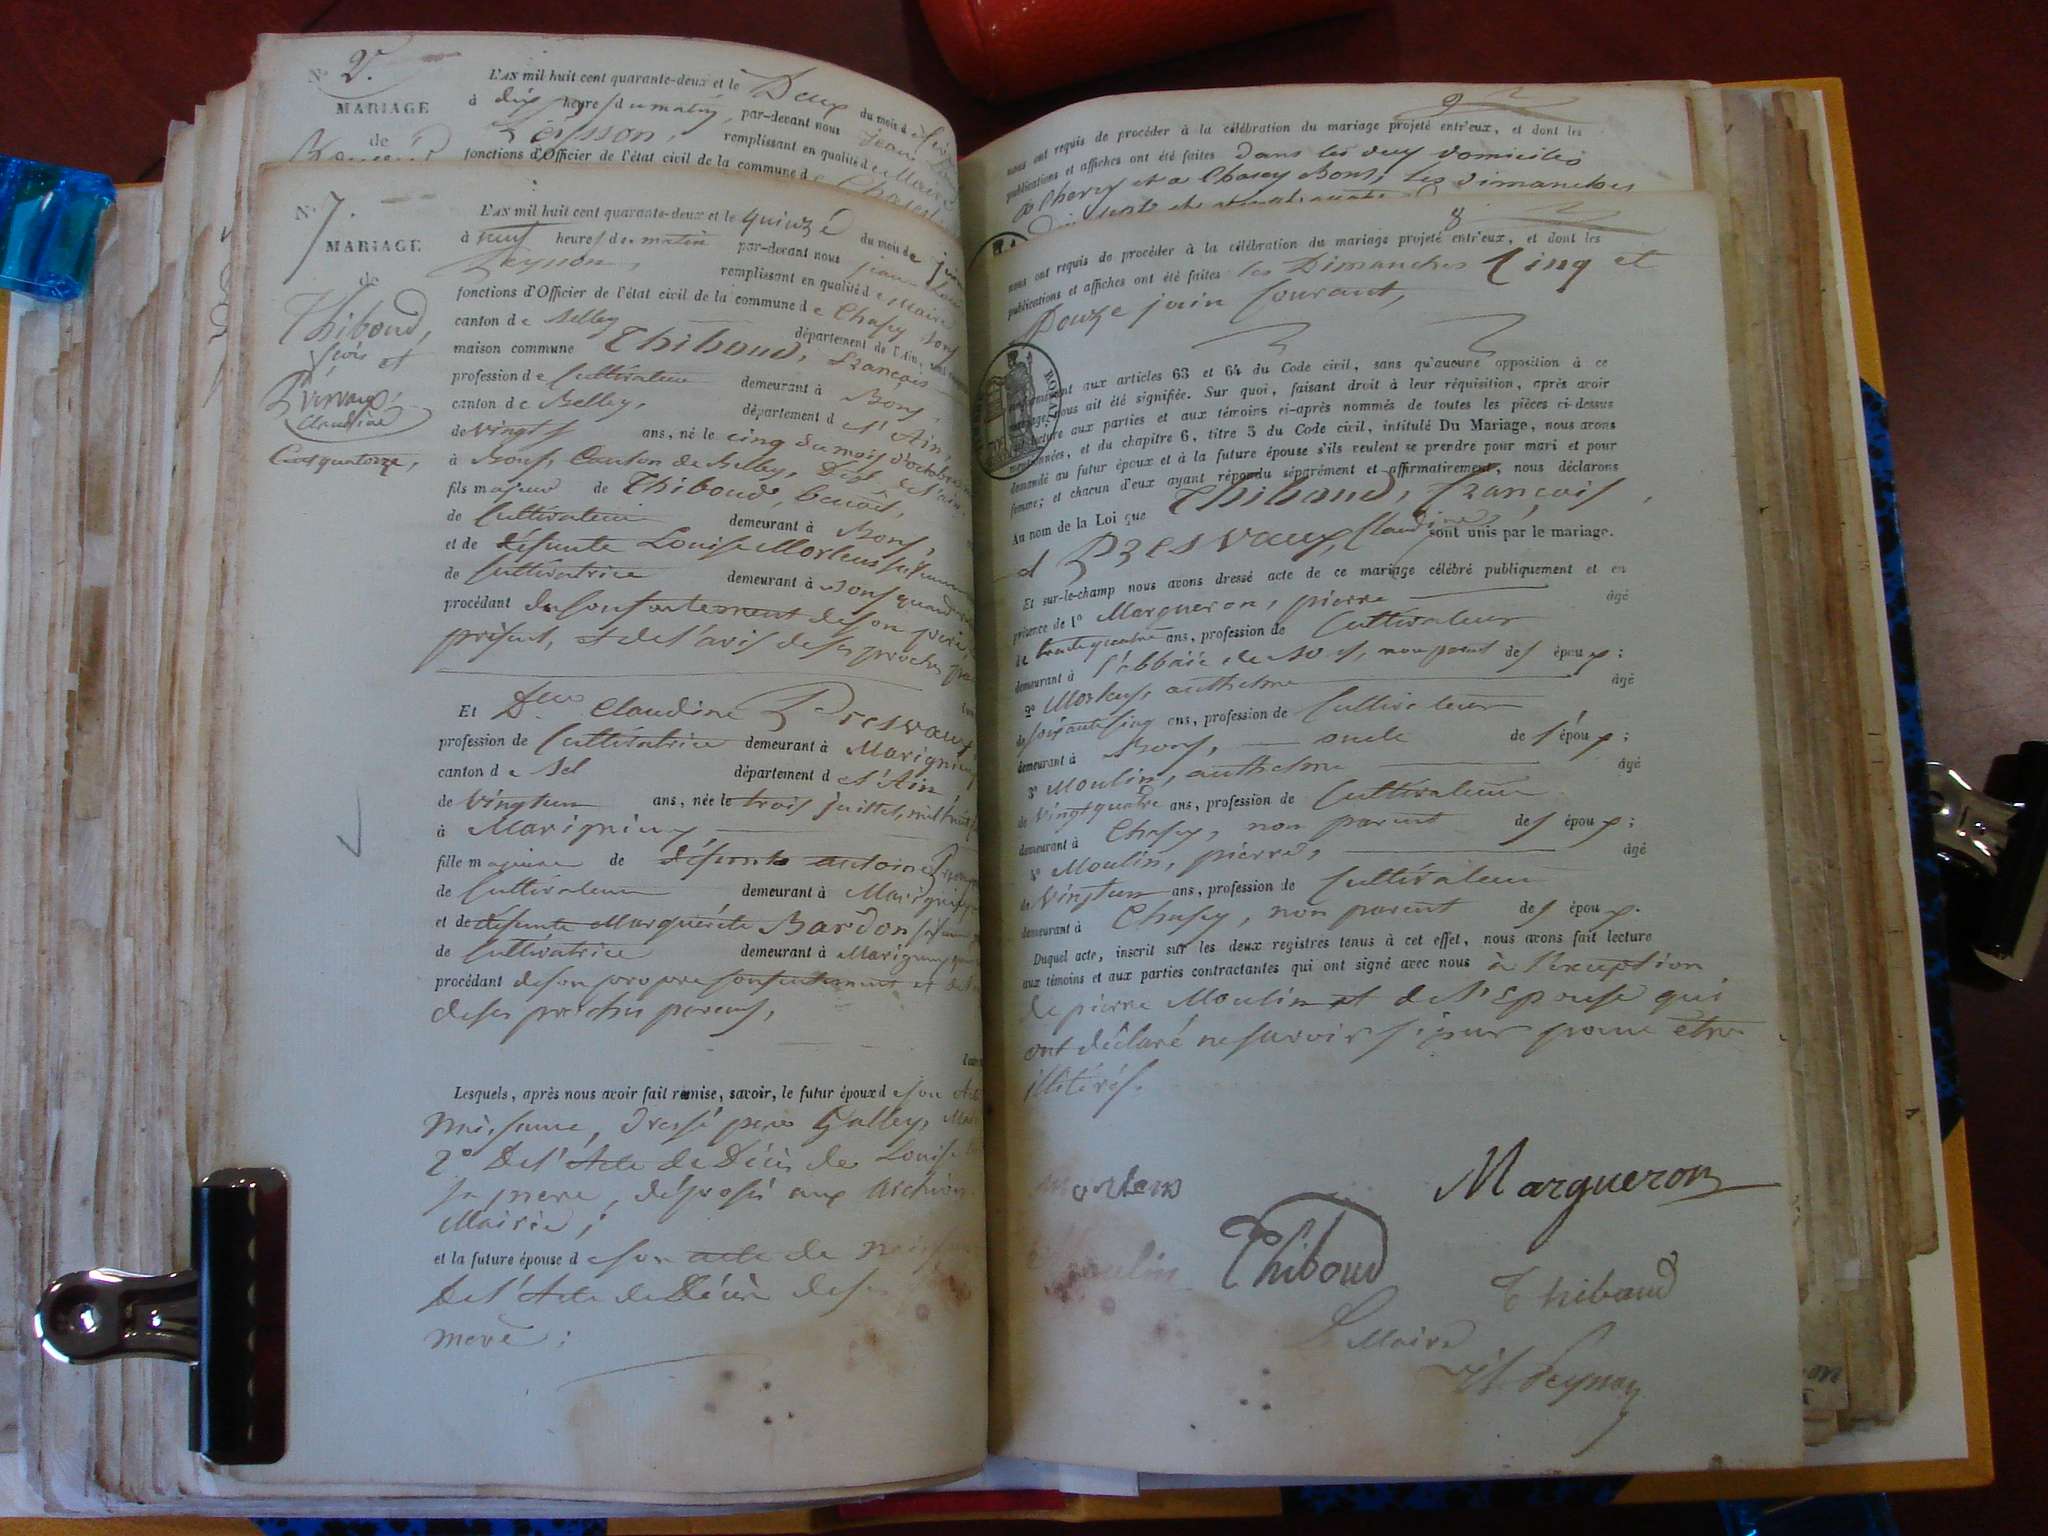 N.º 2.
MARIAGE
de
L'AN mil huit cent quarante-deux et le Deux du mois d
à dix heures du matin, par-devant nous jean
Peysson, remplissant en qualité de Maire
fonctions d'Officier de l'état civil de la commune de
N.º 7.
MARIAGE
de
Thiboud,
et
Claudine
L'AN mil huit cent quarante-deux et le quinze du mois de juin
à neuf heures du matin par-devant nous jean
Peysson, remplissant en qualité de Maire
fonctions d'Officier de l'état civil de la commune de Chasey Bons
canton de Belley département de l'Ain,
maison commune Thiboud, François
profession de Cultivateur demeurant à Bons,
canton de Belley, département de l'Ain,
de vingt ans, né le cinq du mois d'octobre
à Bons, Canton de Belley, Dépt. de l'ain,
fils majeur de Thiboud, benoit,
de Cultivateur demeurant à Bons,
et de défunte Louise Morlens
de Cultivatrice demeurant à Bons quand
procédant du consentement de son père,
présent, et de l'avis de ses proches
Et Dlle Claudine Presvaux
profession de Cultivatrice demeurant à Marignieu
canton de Bel département de l'Ain,
de vingt un ans, née le trois juillet, mil huit
à Marignieu,
fille majeure de défunt antoine
de Cultivateur demeurant à Marignieu
et de défunte Marguerite Bardon
de Cultivatrice demeurant à Marignieu
procédant de son propre consentement et
de ses proches parens,
Lesquels, après nous avoir fait remise, savoir, le futur époux de son Acte
naissance, dressé
2º De l'Acte de Décès de Louise
sa mere, déposés aux Archives
Mairie;
et la future épouse de son acte de
De l'Acte de Décès de ses
mere;
9
nous ont requis de procéder à la célébration du mariage projeté entr'eux, et dont les
publications et affiches ont été faites Dans les deux domiciles
a Chasey Bons, les Dimanches
8
nous ont requis de procéder à la célébration du mariage projeté entr'eux, et dont les
publications et affiches ont été faites les Dimanches Cinq et
Douze juin Courant,
ROYAL
aux articles 63 et 64 du Code civil, sans qu'aucune opposition à ce
mariage nous ait été signifiée. Sur quoi, faisant droit à leur réquisition, après avoir
lecture aux parties et aux témoins ci-après nommés de toutes les pièces ci-dessus
mentionnées, et du chapitre 6, titre 5 du Code civil, intitulé Du Mariage, nous avons
demandé au futur époux et à la future épouse s'ils veulent se prendre pour mari et pour
femme; et chacun d'eux ayant répondu séparément et affirmativement, nous déclarons
Au nom de la Loi que Thiboud, François,
et Presvaux, Claudine, sont unis par le mariage.
Et sur-le-champ nous avons dressé acte de ce mariage célébré publiquement et en
présence de 1º Margueron, pierre âgé
de trente quatre ans, profession de Cultivateur
demeurant à l'abbaie de Bons, non parent des époux;
2º Morlens, anthelme âgé
de soixante cinq ans, profession de Cultivateur
demeurant à Bons, oncle de l'époux;
3º Moulin, anthelme âgé
de vingt quatre ans, profession de Cultivateur
demeurant à Chasey, non parent des époux;
4º Moulin, pierre, âgé
de vingt un ans, profession de Cultivateur
demeurant à Chasey, non parent des époux.
Duquel acte, inscrit sur les deux registres tenus à cet effet, nous avons fait lecture
aux témoins et aux parties contractantes qui ont signé avec nous à l'exception
de pierre Moulin et de l'Epouse qui
ont déclaré ne savoir signer pour être
illitérés.
Morlens
Margueron
Moulin
Thiboud
Thiboud
Le Maire
Peysson